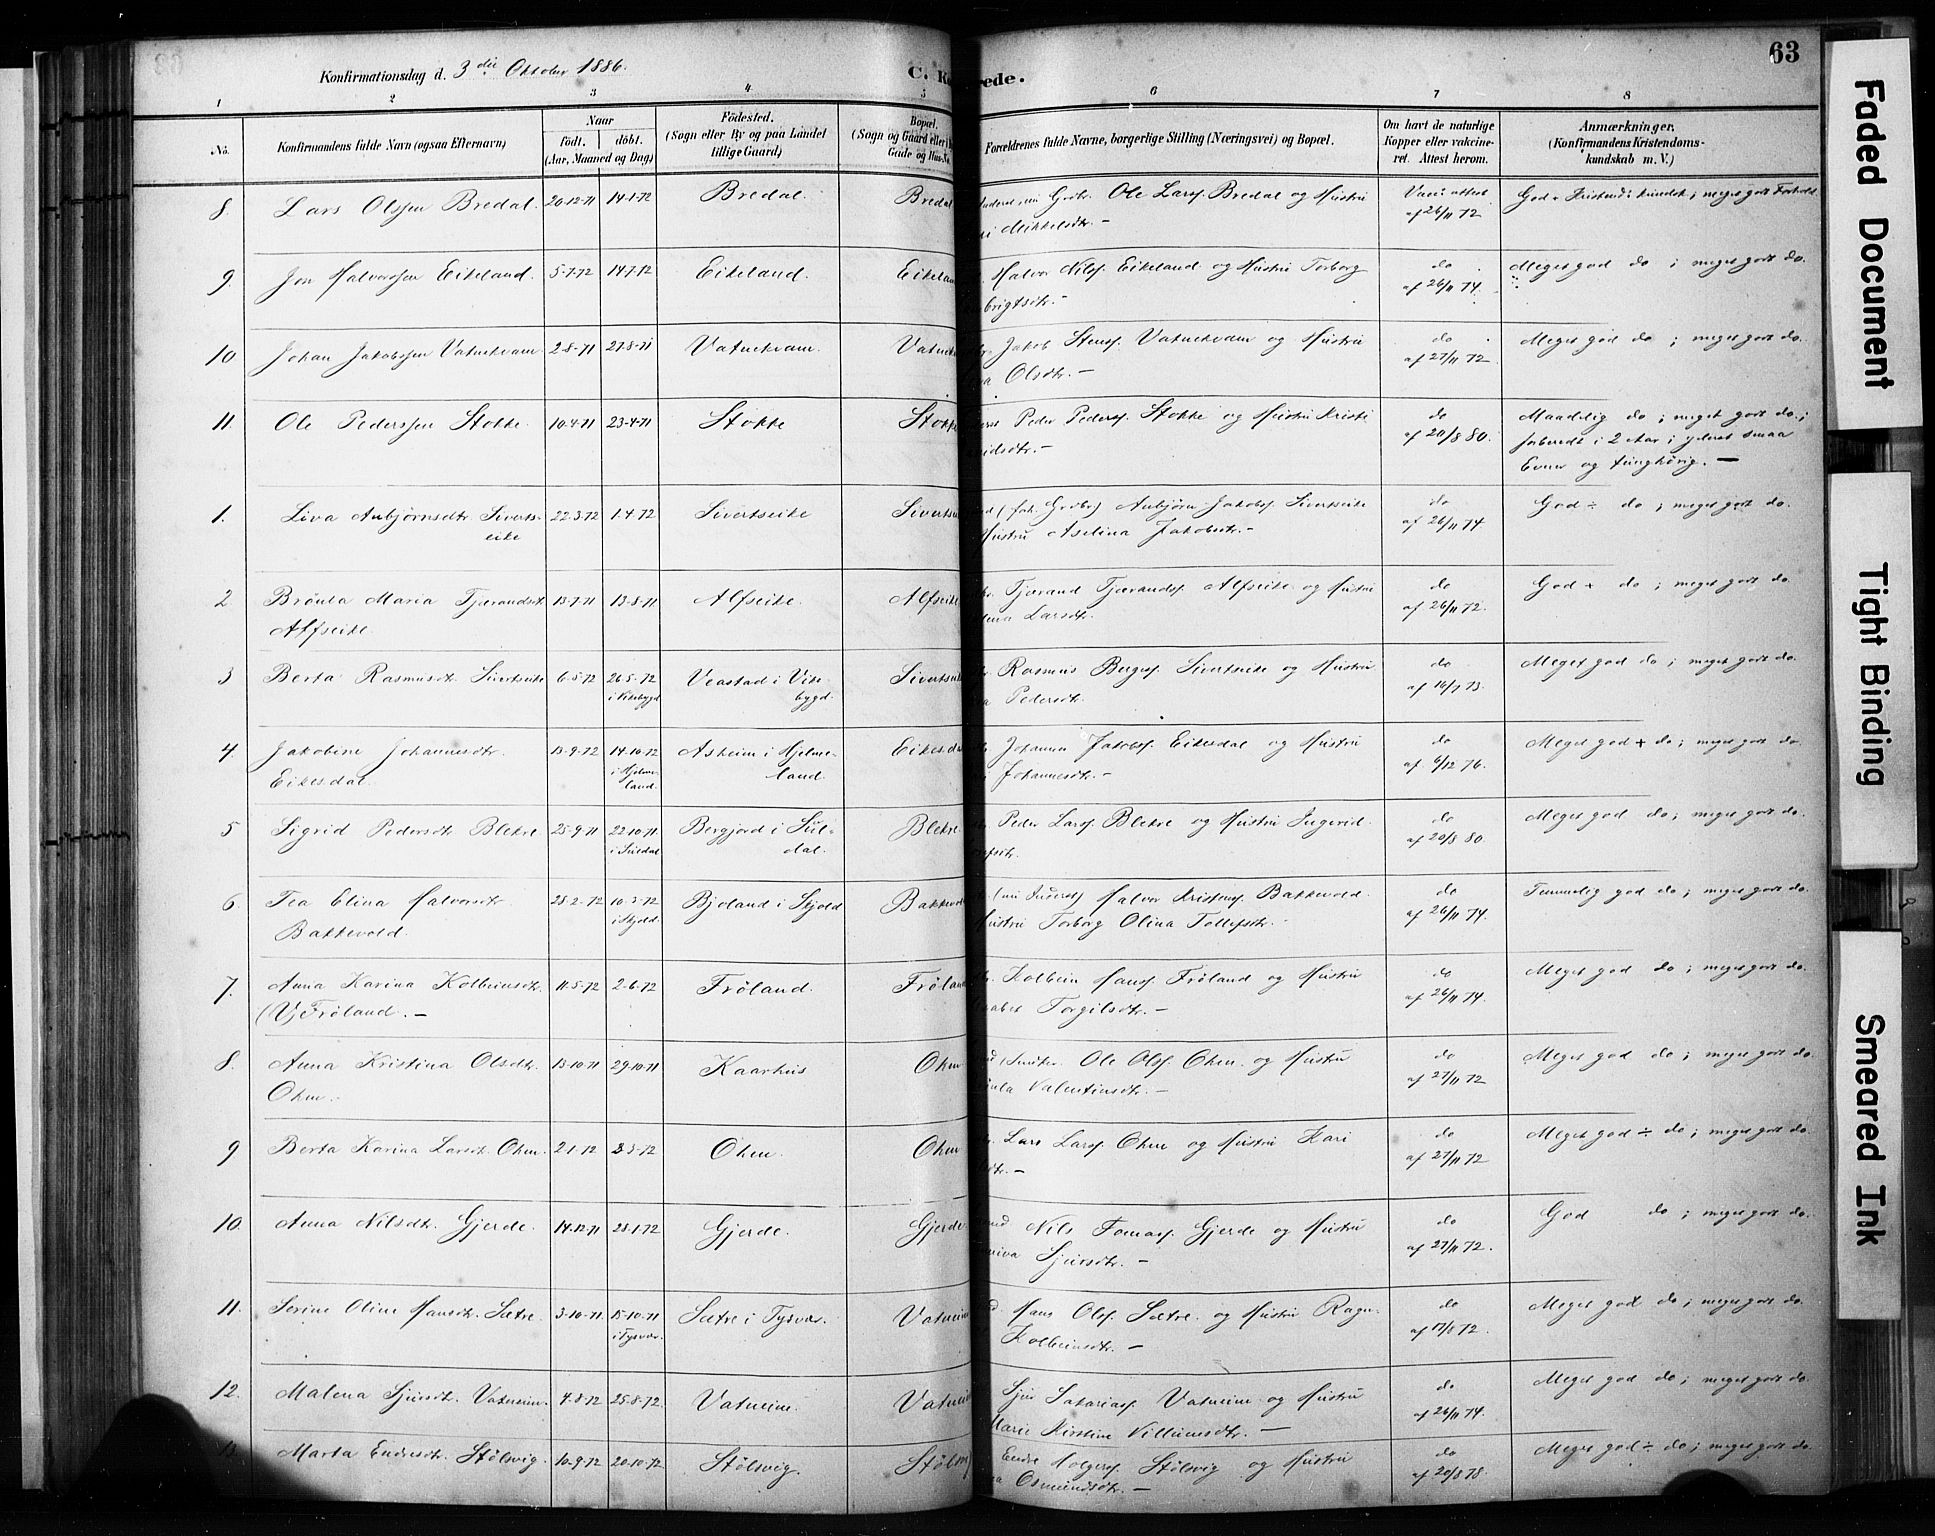 63
Konfirmationsdag d. 3die Oktober 1886.
C. K
ede.
1 2 3 4. 5 6 7 8
No.
Konfirmandens fulde Navn (ogsaa Efternavn)
Naar
født. døbt.
(Aar, Maaned og Dag)
Födested.
(Sogn eller By og paa Landet
tillige Gaard)
Bopæl.
(Sogn og Gaard eller
Gade og Hus-No
Forældrenes fulde Navne, borgerlige Stilling (Næringsvei) og Bopæl.
Om havt de naturlige
Kopper eller vakcine-
ret. Attest herom.
Anmærkninger.
(Konfirmandens Kristendoms-
kundskab m. V.)
8. Lars Olssen Bredal. 20-12-71 14-1-72 Bredal. Bredal Ole Larss. Bredal og Hustru
Mikkelsdtr. —
af 26/11 72
9. Jon Halvorssen Eikeland. 5-7-72 14-7-72 Eikeland. Eikelan Halvor Nilss. Eikeland og Hustru Torborg
brigtsdtr. —
do af 26/11 74. Meget god do ; meget godt do.
10. Johan Jakobssen Vatnekvam 2-8-71 27-8-71 Vatnekvam. Vatnek Jakob Stenss. Vatnekvam og Hustru
a Olsdtr. —
do af 27/11 72. Meget god do ; meget godt do.
11. Ole Pederssen Stokke. 10-4-71 23-4-71 Stokke Stokke Peder Pederss. Stokke og Hustru Kristi
idsdtr. —
do af 20/8 80. Maadelig do ; meget godt do. ;
forberedt i 2 Aar ; yderst smaa
Evner og tunghørig. —
1. Liva Anbjørnsdtr. Siverts-
eike
22-3-72 1-4-72 Sivertseike Siverts Anbjørn Jakobss. Sivertseike
Hustru Aselina Jakobsdtr. —
do af 26/11 74. God ÷ do ; meget godt do.
2 Brönla Maria Tjærandsdtr.
Alfseike.
13-7-71 13-8-71 Alfseike. Alfseike Tjærand Tjærandss. Alfseike og Hustru
Larsdtr.
do af 26/11 72. God + do ; meget godt do.
3 Berta Rasmusdtr. Sivertseike 6-5-72 26-5-72
i Vikebygd
Veastad i Vike-
bygd.
Sivertsei Rasmus Bergess. Sivertseike og Hustru
a Pedersdtr.
do af 16/7 73. Meget god do ; meget godt do.
4. Jakobine Johannesdtr.
Eikesdal.
13-9-72 14-10-72
i Hjelme-
land.
Asheim i Hjelme-
land.
Eikesda Johannes Jakobss. Eikesdal og Hustru
Johannesdtr. —
do af 6/12 76. Meget god + do ; meget godt do.
5 Sigrid Pedersdtr. Blekre 25-9-71 22-10-71
i Suldal
Bergjord i Sul-
dal.
Blekre. Peder Larss. Blekre og Hustru Ingerid
do af 20/8 80. Meget god do ; meget godt do.
6. Tea Elina Halvorsdtr.
Bakkevold.
28-2-72 10-3-72
i Skjold
Bjoland i Skjold Bakkevo Halvor Kristenss. Bakkevold.
Hustru Torborg Olina Tollefsdtr. —
do af 26/11 74. Temmelig god do ; meget godt do.
7. Anna Karina Kolbeinsdtr.
(V) Fröland. —
11-5-72 2-6-72 Fröland. Frölan Kolbein Hanss. Fröland og Hustru
sabet Torgilsdtr. —
do af 26/11 74. Meget god do ; meget godt do.
8. Anna Kristina Olsdtr.
Ohm.
13-10-71 29-10-71 Kaarhus Ohm Ole Olss. Ohm. og Hustru
önla Valentinsdtr. —
do af 27/11 72 Meget god do ; meget godt do.
9 Berta Karina Larsdtr. Ohm. 2-1-72 3-3-72 Ohm. Ohm Lars Larss. Ohm og Hustru Kari
dtr. —
do af 27/11 72 Meget god ÷ do ; meget godt do.
10. Anna Nilsdtr. Gjerde. 14-12-71 28-1-72 Gjerde. Gjerde. Nils Tomass. Gjerde og Hustru
Sjursdtr. —
do af 27/11 72. God do ; meget godt do.
11. Serine Oline Hansdtr. Sætre. 3-10-71 15-10-71
i Tysvær
Sætre i Tysvær. Vatnein Hans Olss. Sætre. og Hustru Ragn-
Kolbeinsdtr. —
do af 17/8 72. Meget god do ; meget godt do.
12. Malena Sjursdtr. Vatneim. 4-8-72 25-8-72 Vatneim. Vatnei Sjur Sakariass. Vatneim og Hustru
Marie Kirstine Villumsdtr. —
do af 26/11 74. Meget god do ; meget godt do.
Marta Endresdtr. Stölsvig. 10-9-72 20-10-72 Stölsvig. Stölsvi Endre Holgerss. Stölsvig og Hustru
a Osmundsdtr. —
do af 20/8 78. Meget god ÷ do ; meget godt do.
Faded Document
Tight Binding
Smeared Ink